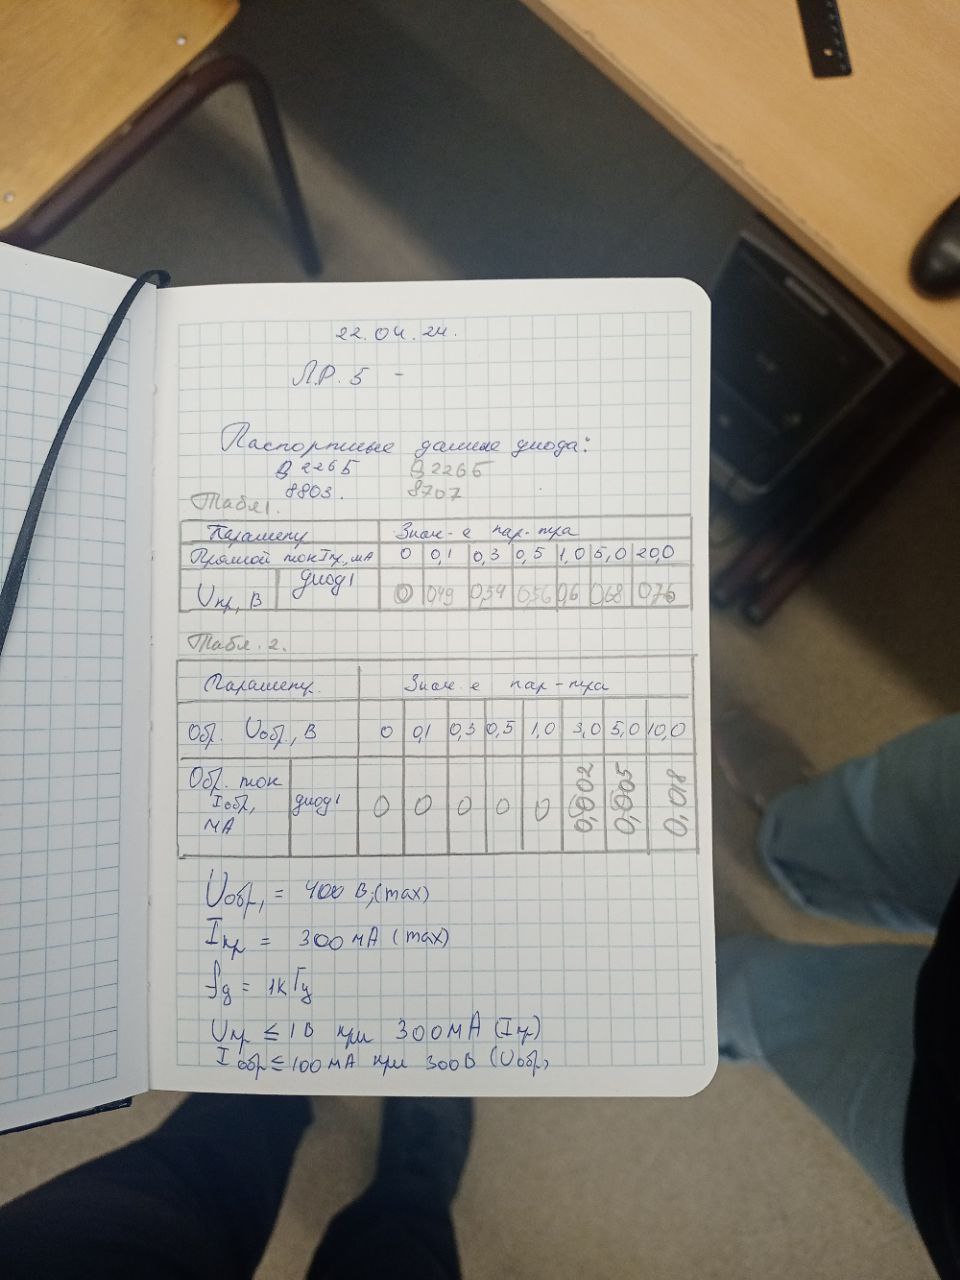 22.04.24.
Л.Р. 5 -
Паспортные данные диода:
Д226Б Д226Б
8803. 8707
Табл 1.
Параметр Знач-е пар-тра
Прямой ток Iпр, мА 0 0,1 0,3 0,5 1,0 5,0 20,0
Uпр, В диод 1 0 0,49 0,54 0,56 0,6 0,68 0,76
Табл. 2.
Параметр. Знач-е пар-тра
Обр. Uобр, В 0 0,1 0,3 0,5 1,0 3,0 5,0 10,0
Обр. ток
Iобр, диод 1 0 0 0 0 0 0,002 0,005 0,018
мА
Uобр, = 400 В, (max)
Iпр = 300 мА (max)
fд = 1кГц
Uпр ≤ 1В при 300мА (Iпр)
Iобр ≤ 100 мА при 300В (Uобр,